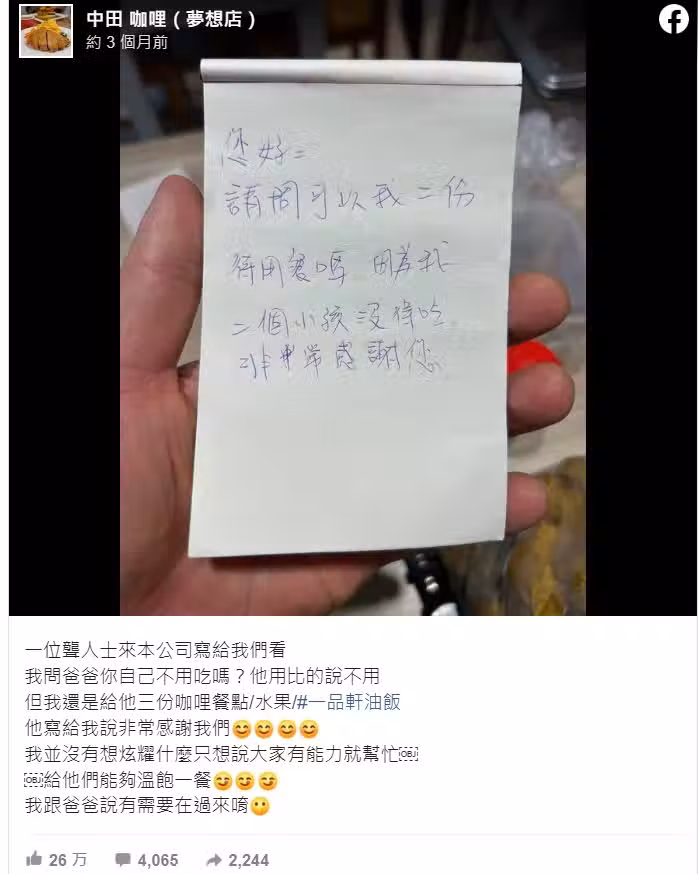 中田 咖哩（夢想店）
約 3 個月前
您好=
請問可以我二份
待用餐嗎 因為我
二個小孩沒得吃
非常感謝您
一位聾人士來本公司寫給我們看
我問爸爸你自己不用吃嗎？他用比的說不用
但我還是給他三份咖哩餐點/水果/#一品軒油飯
他寫給我說非常感謝我們😊😊😊😊
我並沒有想炫耀什麼只想說大家有能力就幫忙￼
￼給他們能夠溫飽一餐😊😊😊
我跟爸爸說有需要在過來唷😗
26 萬 4,065 2,244